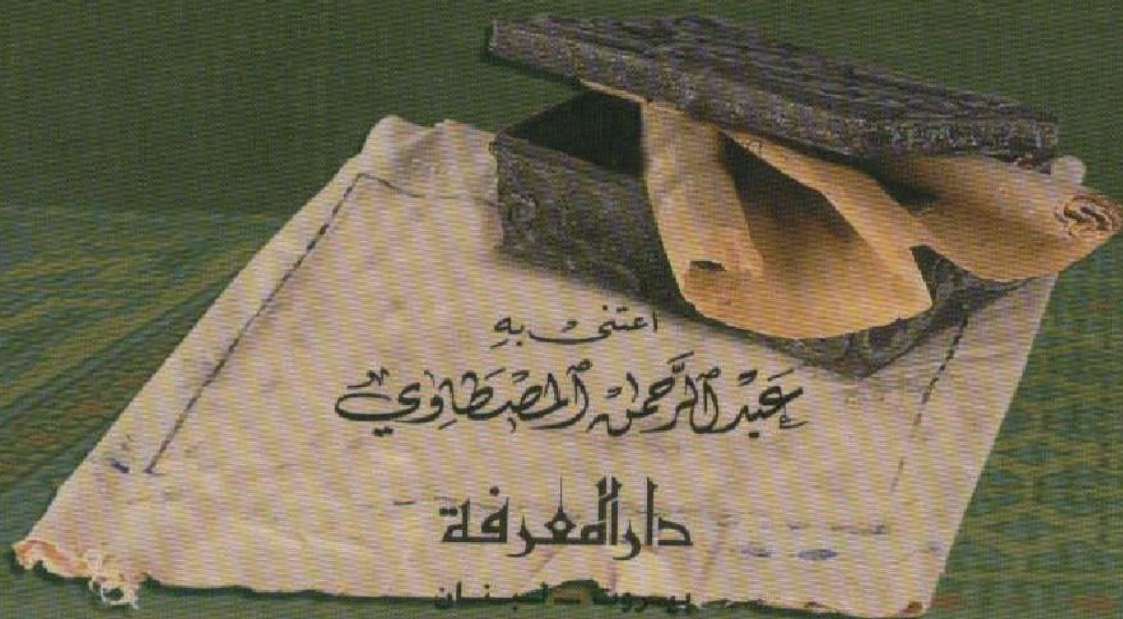 اعتنى به
عَبْد الرَّحمٰن المصْطَاوي
دار المعرفة
بيروت - لبنان